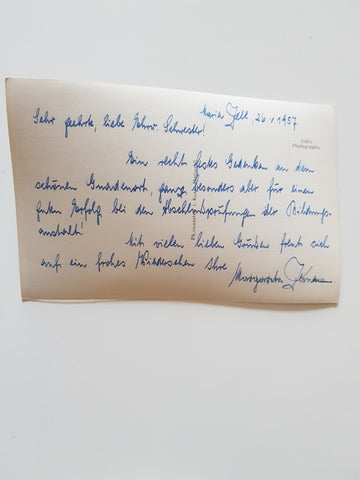 Maria Zell, 26 V 1957
Sehr geehrte, liebe Ehrw. Schwester!
Edith
Photographie
Ein recht festes Gedenken an dem
schönen Gnadenort, ganz besonders aber für einen
guten Erfolg bei den Abschlußprüfungen der Bildungs-
anstalt!
Mit vielen lieben Grüßen freut sich
auf ein frohes Wiedersehen Ihre
Margareta